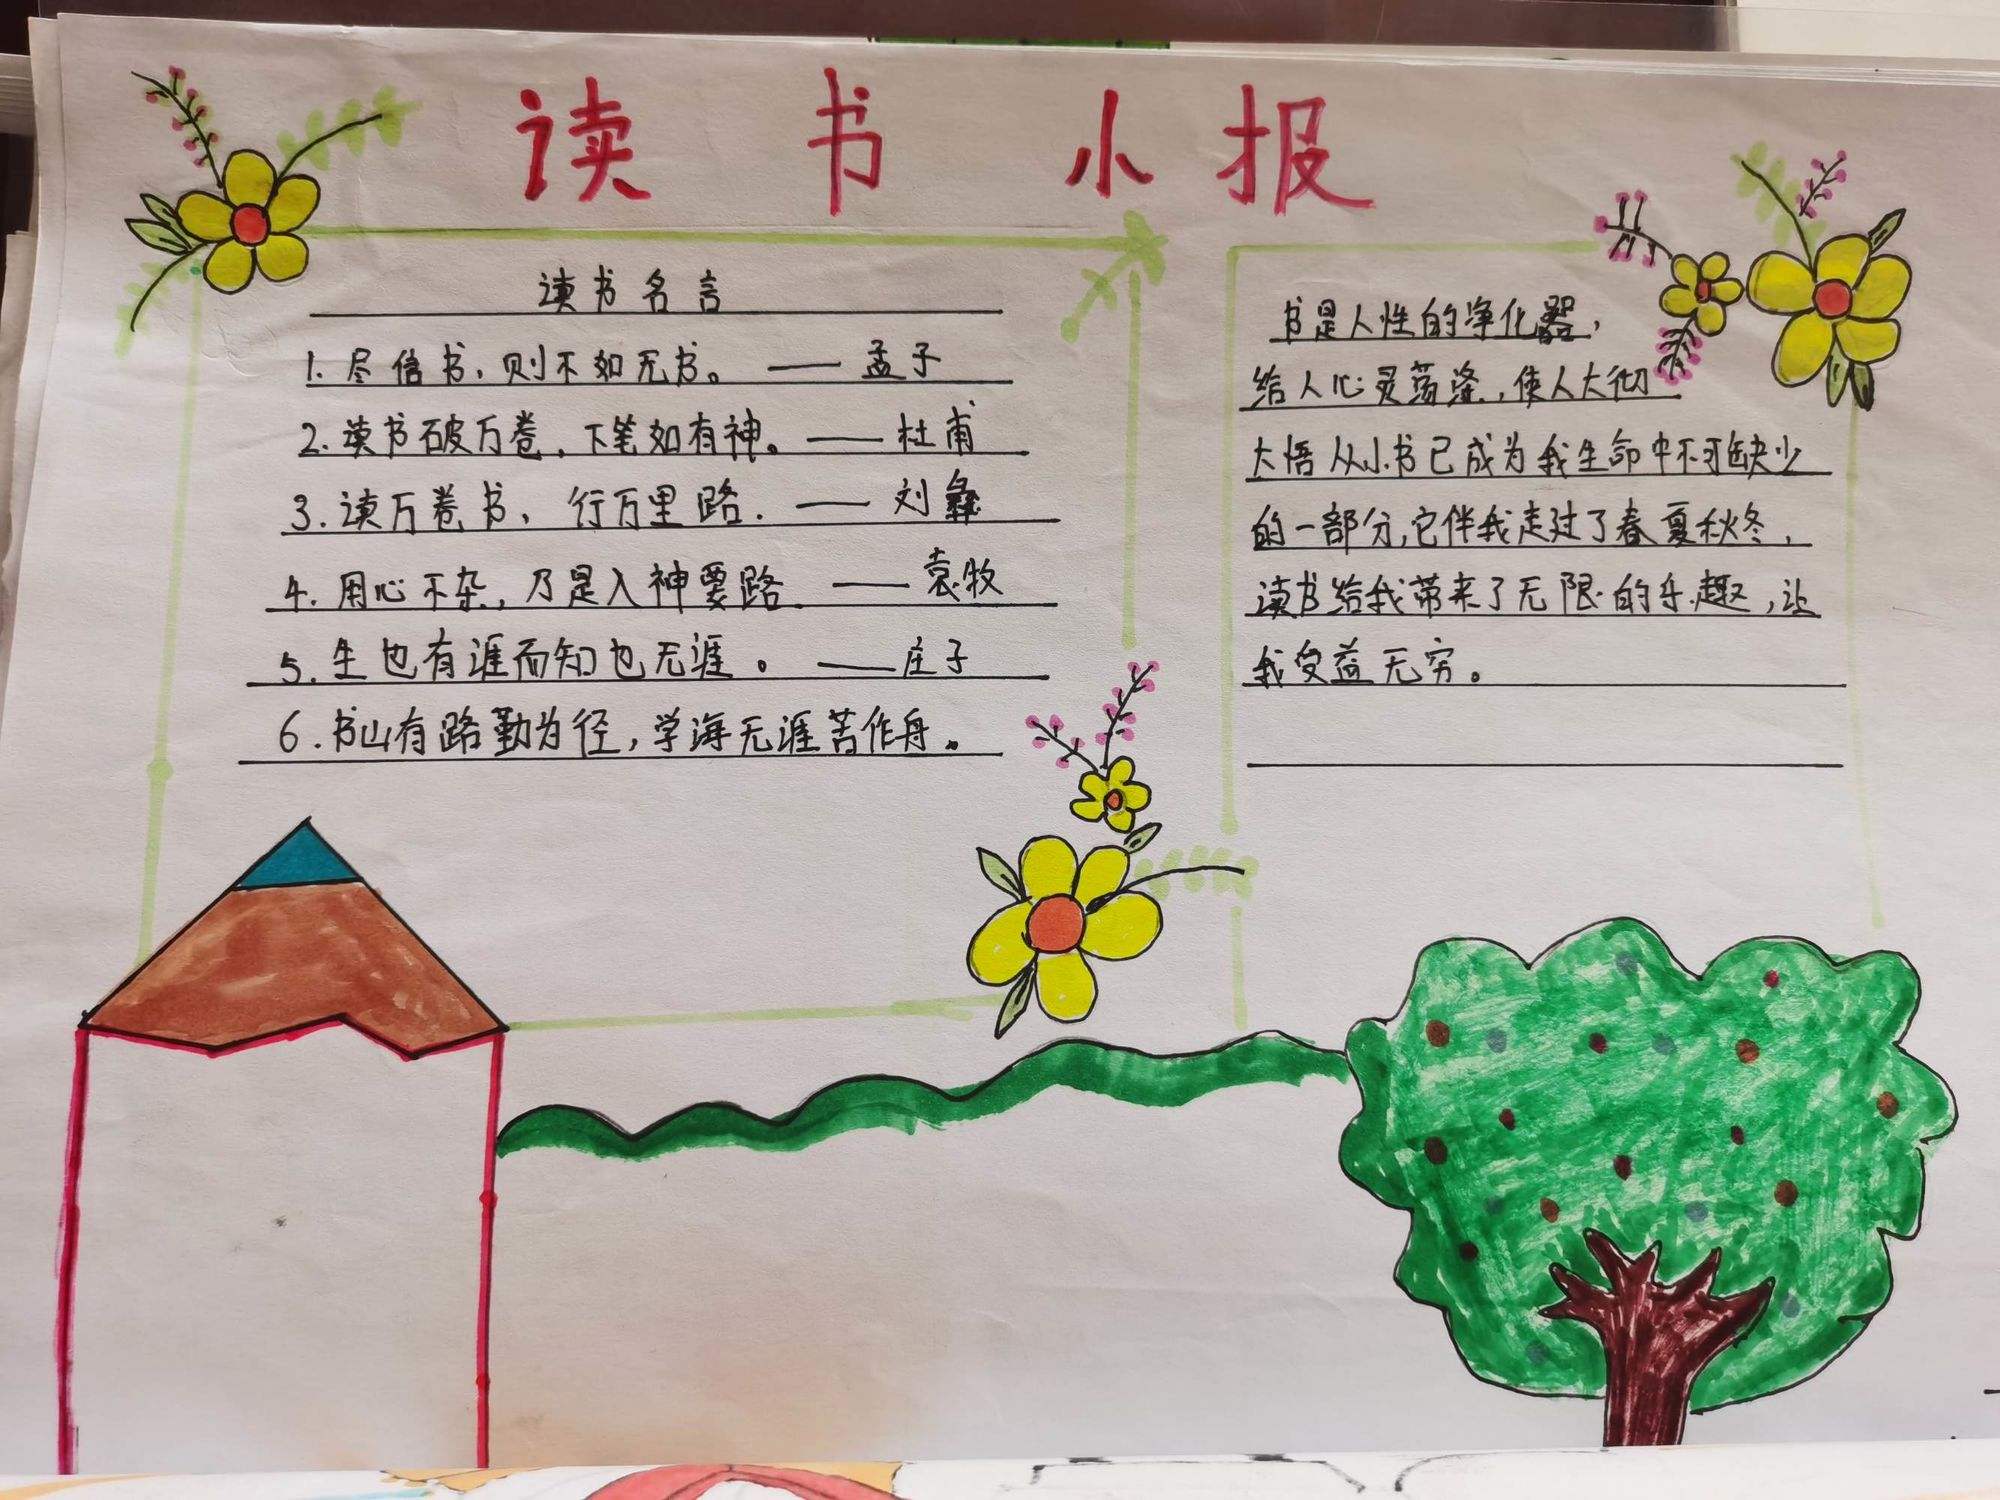 读书小报
读书名言
1. 尽信书，则不如无书。——孟子
2. 读书破万卷，下笔如有神。——杜甫
3. 读万卷书，行万里路.——刘彝
4. 用心不杂，乃是入神要路.——袁牧
5. 生也有涯而知也无涯。——庄子
6. 书山有路勤为径，学海无涯苦作舟。
书是人性的净化器，
给人心灵荡涤，使人大彻
大悟从小书已成为我生命中不可缺少
的一部分，它伴我走过了春夏秋冬，
读书给我带来了无限的乐趣，让
我受益无穷。